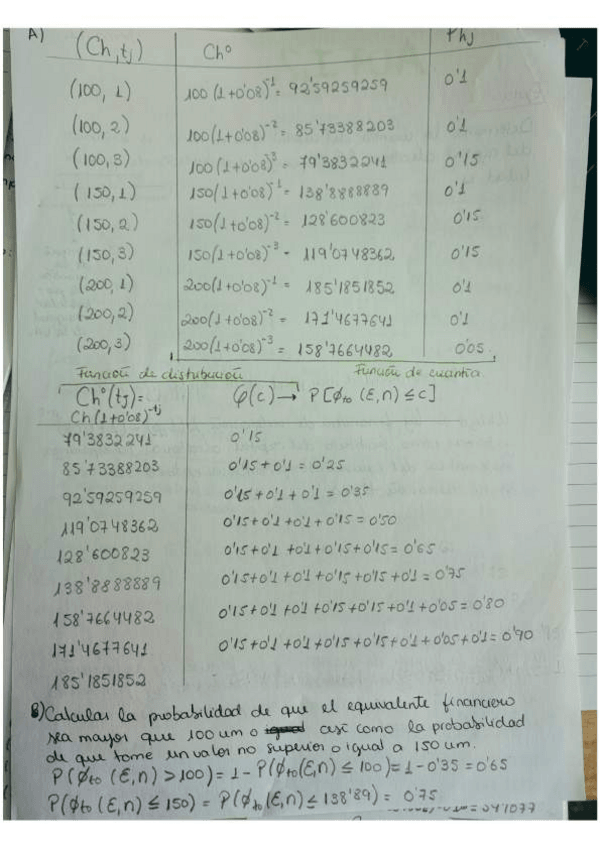 A) (Ch, tj) Ch° Phj
(100, 1) 100(1+0'08)⁻¹ = 92'59259259 0'1
(100, 2) 100(1+0'08)⁻² = 85'73388203 0'1
(100, 3) 100(1+0'08)⁻³ = 79'3832241 0'15
(150, 1) 150(1+0'08)⁻¹ = 138'8888889 0'1
(150, 2) 150(1+0'08)⁻² = 128'600823 0'15
(150, 3) 150(1+0'08)⁻³ = 119'0748362 0'15
(200, 1) 200(1+0'08)⁻¹ = 185'1851852 0'1
(200, 2) 200(1+0'08)⁻² = 171'4677641 0'1
(200, 3) 200(1+0'08)⁻³ = 158'7664482 0'05
Función de distribución Función de cuantía
Ch°(tj) = φ(c) → P[φto (E,n) ≤ c]
Ch(1+0'08)^-tj
79'3832241 0'15
85'73388203 0'15+0'1 = 0'25
92'59259259 0'15+0'1+0'1 = 0'35
119'0748362 0'15+0'1+0'1+0'15 = 0'50
128'600823 0'15+0'1+0'1+0'15+0'15 = 0'65
138'8888889 0'15+0'1+0'1+0'15+0'15+0'1 = 0'75
158'7664482 0'15+0'1+0'1+0'15+0'15+0'1+0'05 = 0'80
171'4677641 0'15+0'1+0'1+0'15+0'15+0'1+0'05+0'1 = 0'90
185'1851852
B) Calcular la probabilidad de que el equivalente financiero
sea mayor que 100 um o igual así como la probabilidad
de que tome un valor no superior o igual a 150 um.
P(φto (E,n) > 100) = 1 - P(φto (E,n) ≤ 100) = 1 - 0'35 = 0'65
P(φto (E,n) ≤ 150) = P(φto (E,n) ≤ 138'89) = 0'75